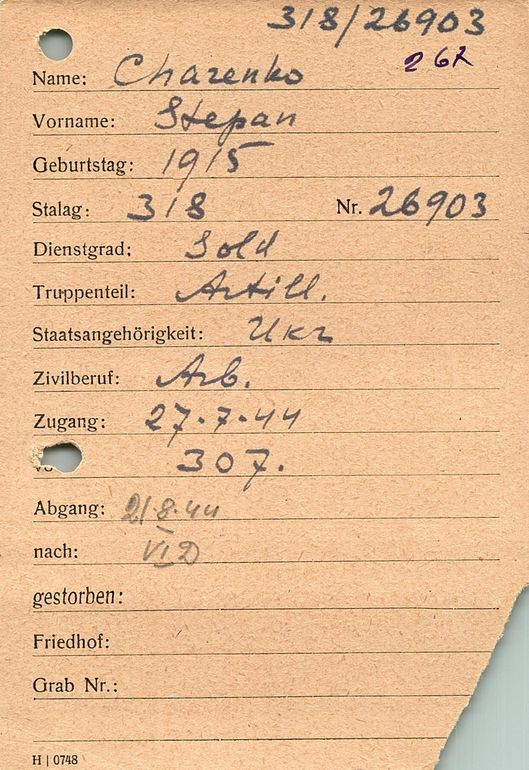 318/26903
267
Name: Charenko
Vorname: Stepan
Geburtstag: 1915
Stalag: 318 Nr. 26903
Dienstgrad: Sold
Truppenteil: Artill.
Staatsangehörigkeit: Ukr
Zivilberuf: Arb.
Zugang: 27.7.44
307.
Abgang: 21.8.44
nach: VI D
gestorben:
Friedhof:
Grab Nr.:
H | 0748